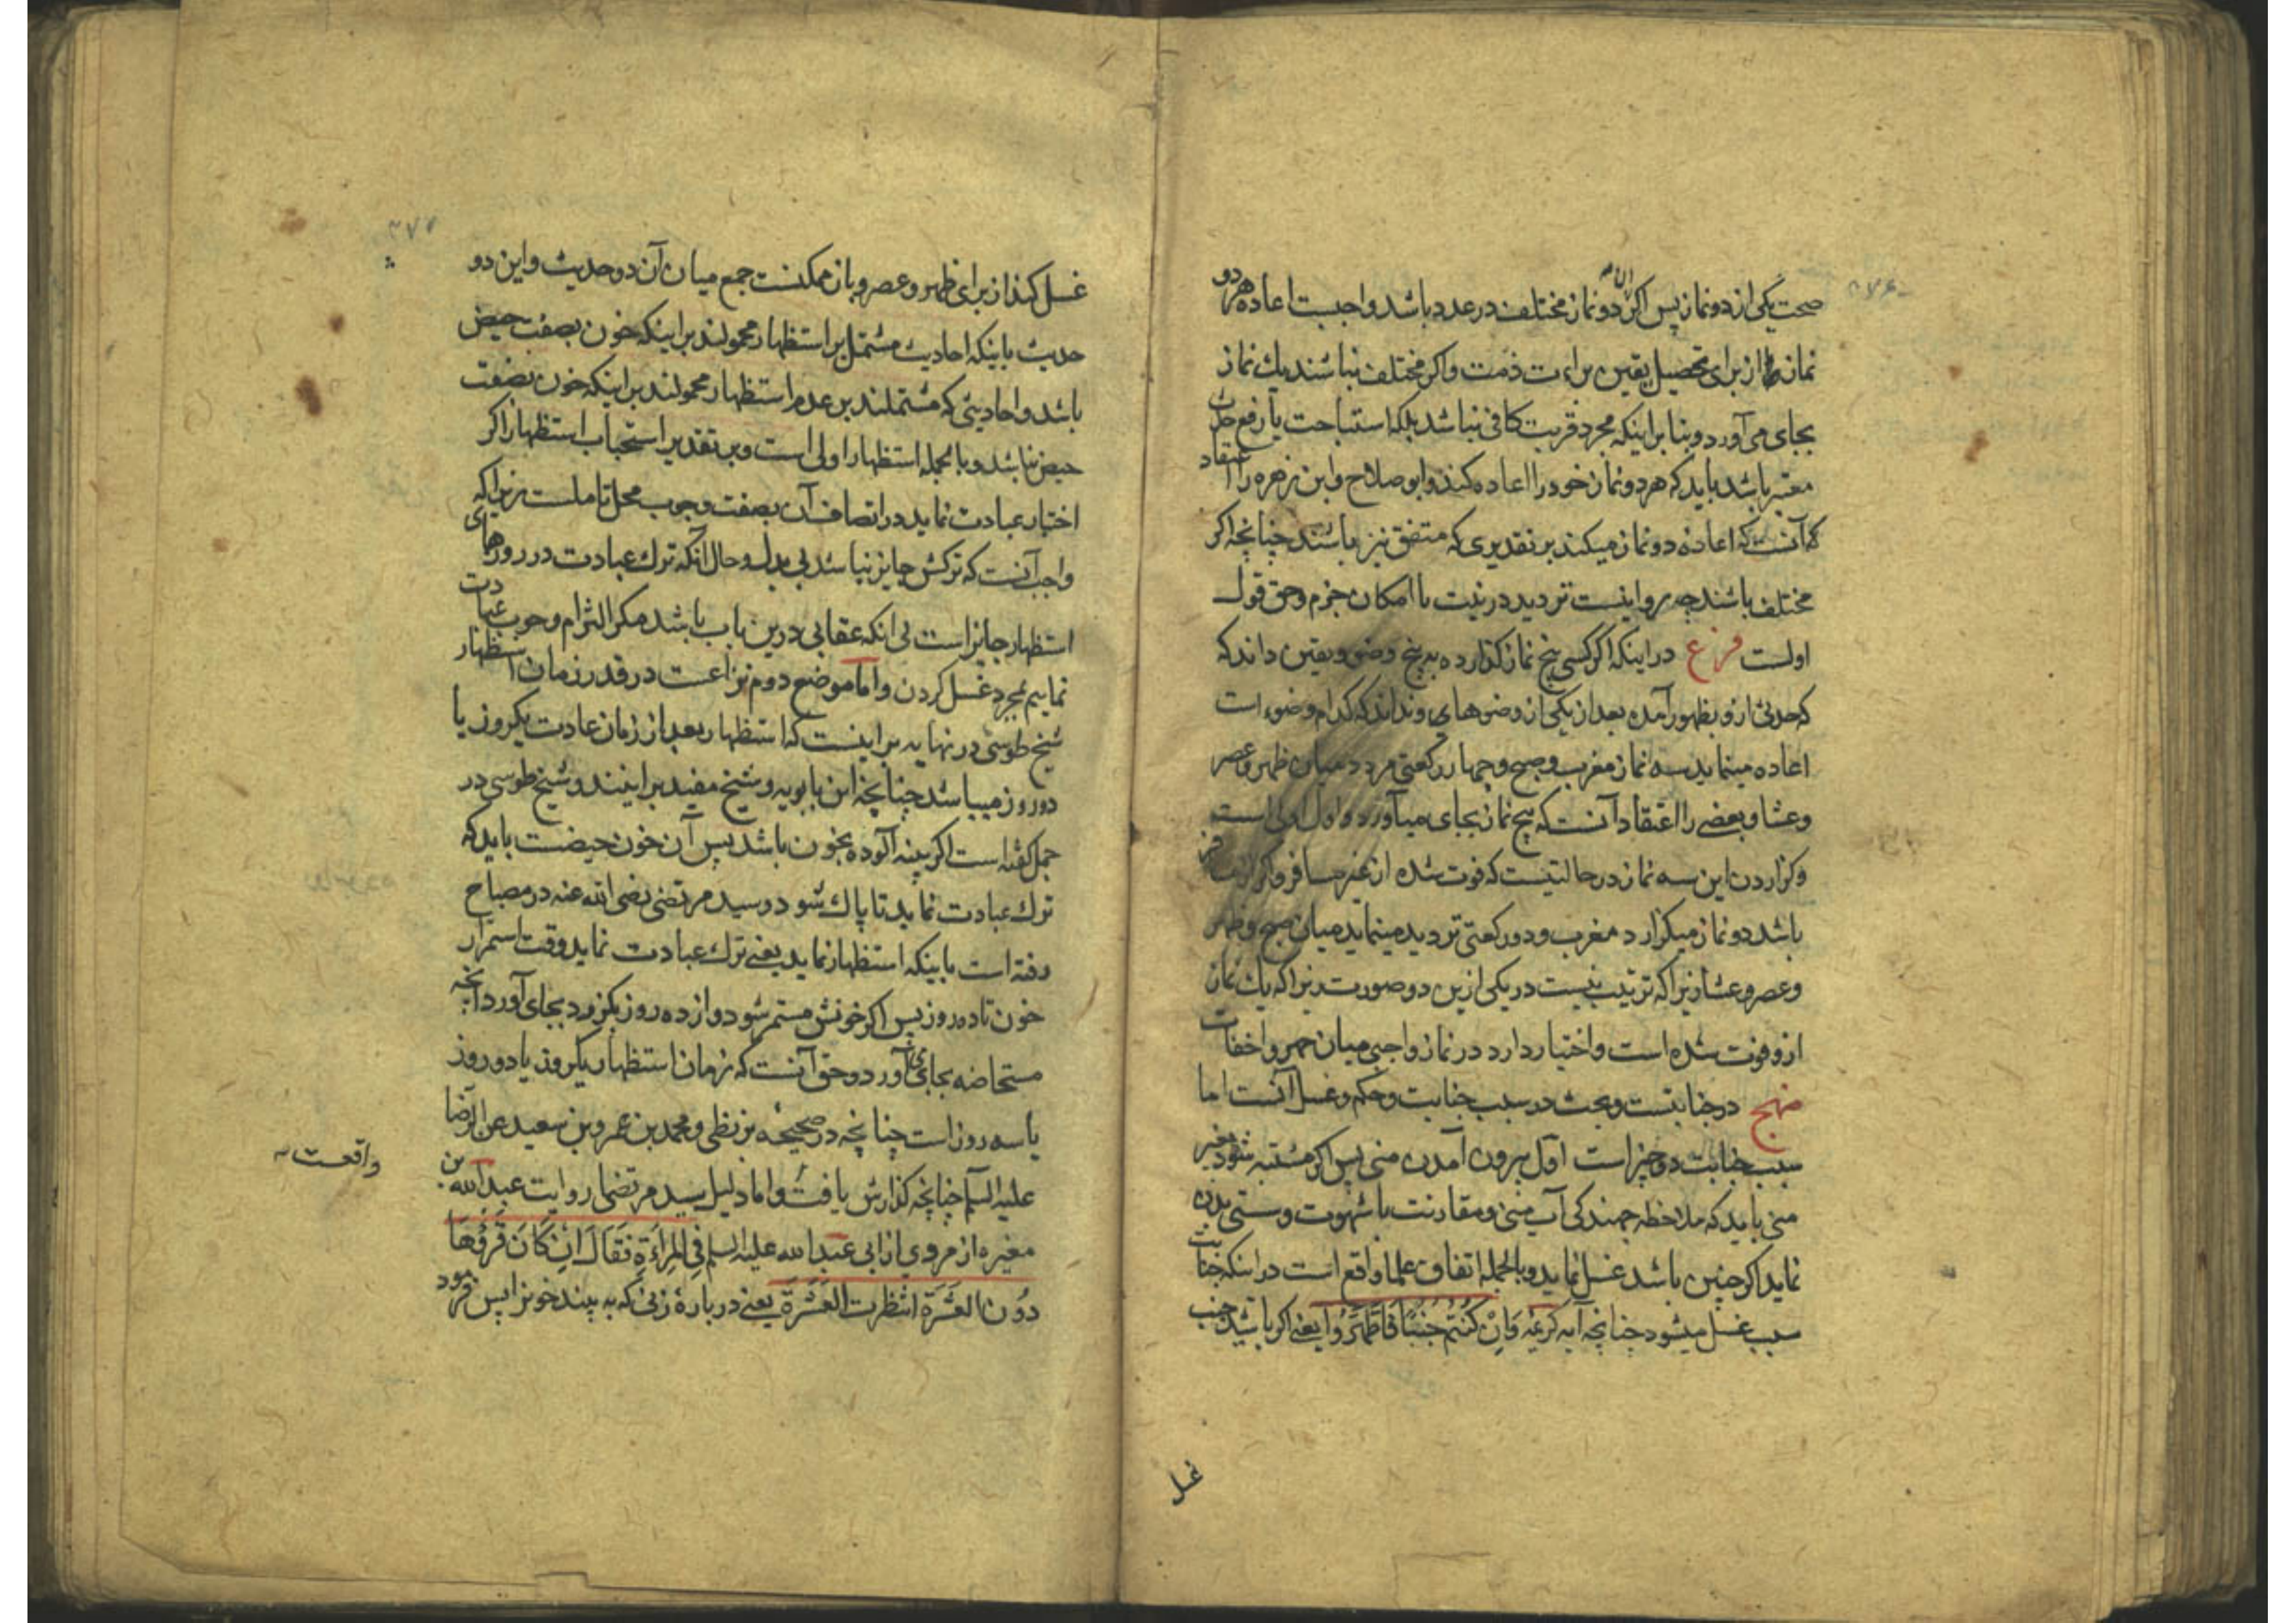 صحت یکی از دو نماز پس اکر دو نماز مختلف در عدد باشد واجبست اعاده هر دو
نماز از برای تحصیل یقین براءت ذمت واکر مختلف نباشند یك نماز
بجای می آورد و بنا بر اینکه مجرد قربت کافی نباشد بلکه استباحت یا رفع حدث
معتبر باشد باید که هر دو نماز خود را اعاده کند وابو صلاح وابن زهره را اعتقاد
که آنست که اعاده دو نماز میکند بر تقدیری که متفق نیز باشند چنانچه اکر
مختلف باشند چه روا نیست تردید در نیت با امکان جزم وحق قول
اولست فرع در اینکه اکر کسی پنج نماز کذارده به پنج وضو ویقین داند که
که حدثی ازو بظهور آمده بعد از یکی از وضوهای ونداند که کدام وضوء است
اعاده مینماید سه نماز مغرب وصبح وچهار رکعتی مردد میان ظهر وعصر
وعشا وبعضی را اعتقاد آنست که پنج نماز بجای میآورد واول اولی است
وکزاردن این سه نماز در حالتیست که فوت شده از غیر مسافر واکر از مسافر
باشد دو نماز میکزارد مغرب ودو رکعتی تردید مینماید میان صبح وظهر
وعصر وعشا زیرا که ترتیب نیست در یکی ازین دو صورت زیرا که یك نماز
ازو فوت شده است واختیار دارد در نماز واجبی میان جهر واخفات
منهج در جنابتست وبحث در سبب جنابت وحکم وغسل آنست اما
سبب جنابت دو چیز است اول بیرون آمدن منی پس اکر مشتبه شود بغیر
منی باید که ملاحظه جهندکی آب منی ومقارنت با شهوت وسستی بدن
نماید اکر چنین باشد غسل نماید وبالجمله اتفاق علما واقع است در اینکه جنابت
سبب غسل میشود چنانچه آیه کریمه وَاِنْ کُنْتُم جُنُبًا فَاطَّهَّرُوا یعنی اکر باشید جنب
غسل
غسل کند از برای ظهر وعصر وباز ممکنست جمع میان آن دو حدیث واین دو
حدیث باینکه احادیث مشتمل بر استظهار محمولند بر اینکه خون بصفت حیض
باشد واحادیثی که مشتملند بر عدم استظهار محمولند بر اینکه خون بصفت
حیض نباشد وبالجمله استظهار اولی است وبر تقدیر استحباب استظهار اکر
اختیار عبادت نماید در اتصاف آن بصفت وجوب محل تاملست زیرا که
واجب آنست که ترکش جایز نباشد بی بدل وحال آنکه ترك عبادت در روزهای
استظهار جایز است بی آنکه عقابی درین باب باشد مکر التزام وجوب عبادت
نماییم بمجرد غسل کردن واما موضع دوم نزاعست در قدر زمان استظهار
شیخ طوسی در نهایه بر اینست که استظهار بعد از زمان عادت یکروز یا
دو روز میباشد چنانچه ابن بابویه وشیخ مفید بر اینند وشیخ طوسی در
جمل کفته است اکر پنبه آلوده بخون باشد پس آن خون حیضست باید که
ترك عبادت نماید تا پاك شود وسید مرتضی رضی الله عنه در مصباح
رفته است باینکه استظهار نماید یعنی ترك عبادت نماید وقت استمرار
خون تا ده روز پس اکر خونش مستمر شود واز ده روز بکزرد بجای آورد آنچه
مستحاضه بجای می آورد وحق آنست که زمان استظهار یکروز یا دو روز
یا سه روز است چنانچه در صحیحه بزنطی ومحمد بن عمرو بن سعید عن الرضا
علیه السلم چنانچه کذارش یافت واما دلیل سید مرتضی روایت عبد الله بن
مغیره از مروی از ابی عبد الله علیه السلم فِی الْمَراَةِ فَقَالَ اِنْ کَانَ قُرؤُهَا
دُونَ العَشَرَةِ انْتَظَرَتِ العَشَرَةَ یعنی در باره زنی که به بیند خونرا پس فرمود
واقعست